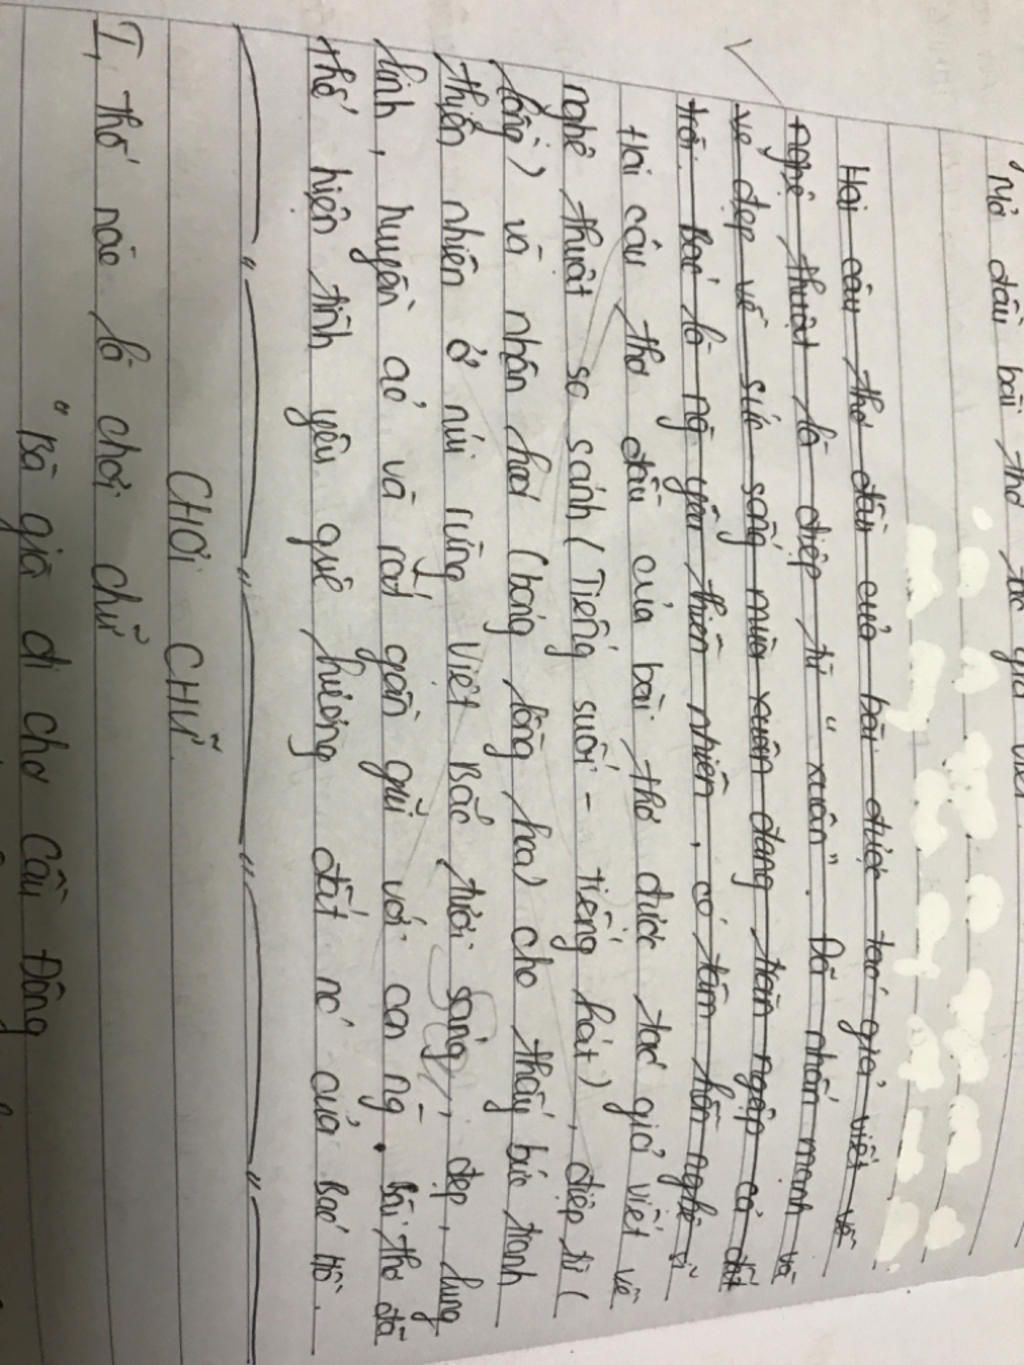 Mở đầu bài thơ tác giả viết
Hai câu thơ đầu của bài được tác giả viết về
nghệ thuật là điệp từ "xuân". Đã nhấn mạnh và
vẻ đẹp về sức sống mùa xuân đang tràn ngập cả đất
trời. Bác là ng yêu thiên nhiên, có tâm hồn nghệ sĩ
Hai câu thơ đầu của bài thơ được tác giả viết về
nghệ thuật so sánh (Tiếng suối - tiếng hát), điệp từ (
lồng) và nhân hoá (bóng lồng hoa) cho thấy bức tranh
thiên nhiên ở núi rừng Việt Bắc tươi sáng, đẹp, lung
linh, huyền ảo và rất gần gũi với con ng. Bài thơ đã
thể hiện tình yêu quê hương đất nc của Bác Hồ.
CHƠI CHỮ
I, Thế nào là chơi chữ
"Bà già đi chợ Cầu Đông